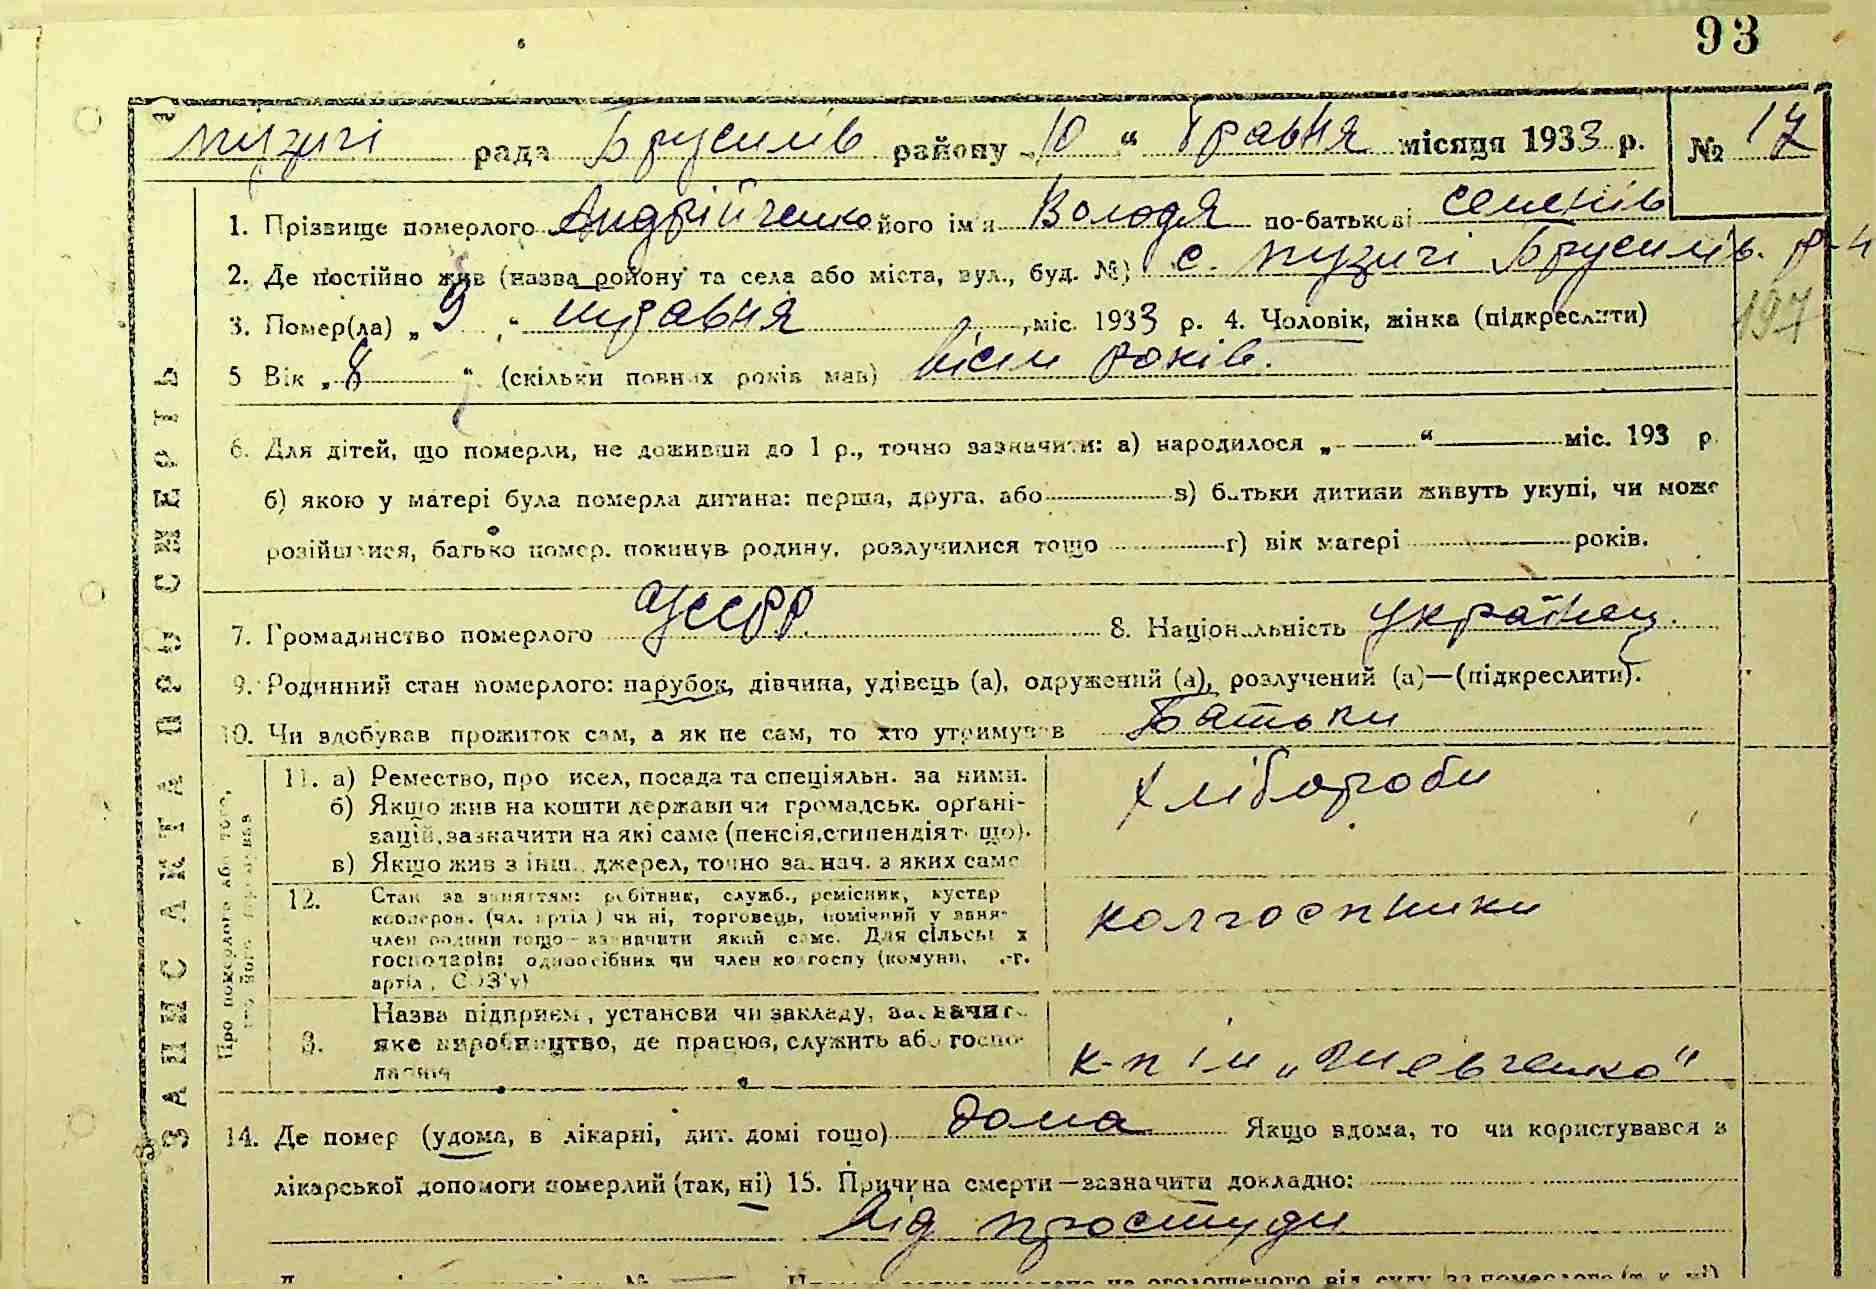 93
пузичі рада Брусилів району „10 “ Травня місяця 1933 р. № 17
1. Прізвище померлого Андрійченко його ім'я Володя по-батькові Семенів
2. Де постійно жив (назва району та села або міста, вул., буд. №) с. пузичі Брусилів. р-н
3. Помер(ла) „9 “ травня міс. 1933 р. 4. Чоловік, жінка (підкреслити)
197
5 Вік „8 “ (скільки повних років мав) вісім років.
6. Для дітей, що померли, не доживши до 1 р., точно зазначити: а) народилося „ — “ — міс. 193 р.
б) якою у матері була померла дитина: перша, друга, або в) батьки дитини живуть укупі, чи може
розійшлися, батько помер, покинув родину, розлучилися тощо г) вік матері — років.
7. Громадянство померлого УССРР. 8. Національність українец.
9. Родинний стан померлого: парубок, дівчина, удівець (а), одружений (а), розлучений (а)—(підкреслити).
10. Чи здобував прожиток сам, а як не сам, то хто утримував Батьки
ЗАПИС АКТА ПРО СМЕРТЬ
Про померлого або того, хто його утримував
11. а) Ремество, про исел, посада та спеціяльн. за ними.
б) Якщо жив на кошти держави чи громадськ. орґані-
зацій, зазначити на які саме (пенсія, стипендія т що).
в) Якщо жив з інш. джерел, точно зазнач. з яких саме
хлібороби
12. Стан за заняттям: робітник, служб., ремісник, кустар
кооперов. (чл. артіл) чи ні, торговець, помічний у заня-
член родини тощо—зазначити який саме. Для сільськ х
господарів: одноосібник чи член колгоспу (комуни, с-г.
артіл, СОЗ'у)
колгоспники
3. Назва підприєм, установи чи закладу, зазначит
яке виробництво, де працює, служить або госпо-
дарнич
к-п ім „Шевченко"
14. Де помер (удома, в лікарні, дит. домі тощо) дома Якщо вдома, то чи користувався з
лікарської допомоги померлий (так, ні) 15. Причина смерти—зазначити докладно:
Від простуди